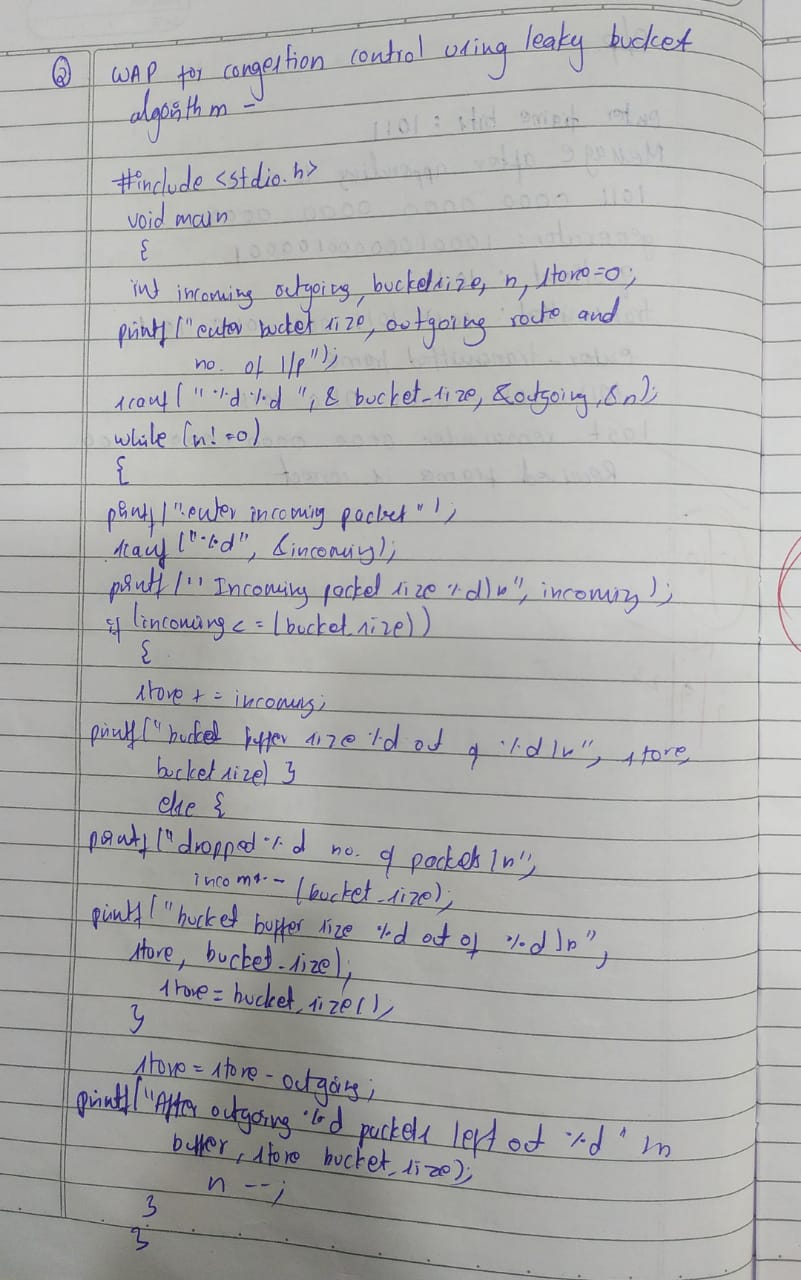 ② WAP for congestion control using leaky bucket
algorithm -
#include <stdio.h>
void main
{
int incoming outgoing, bucketsize, n, store=0;
printf ("enter bucket size, outgoing route and
no. of I/p");
scanf ("%d%d", & bucket_size, &outgoing, &n);
while (n! =0)
{
printf ("enter incoming packet");
scanf ("%d", &incoming);
printf ("Incoming packet size %d\n", incoming);
if (incoming < = (bucket_size))
{
store + = incoming;
printf ("bucket buffer size %d out of %d \n", store,
bucket size) }
else {
printf ("dropped %d no. of packets \n",
- (bucket_size);
printf ("bucket buffer size %d out of %d \n",
store, bucket_size);
store = bucket_size();
}
store = store - outgoing;
printf ("After outgoing %d packets left out %d" in
buffer, store bucket_size);
n --;
}
}